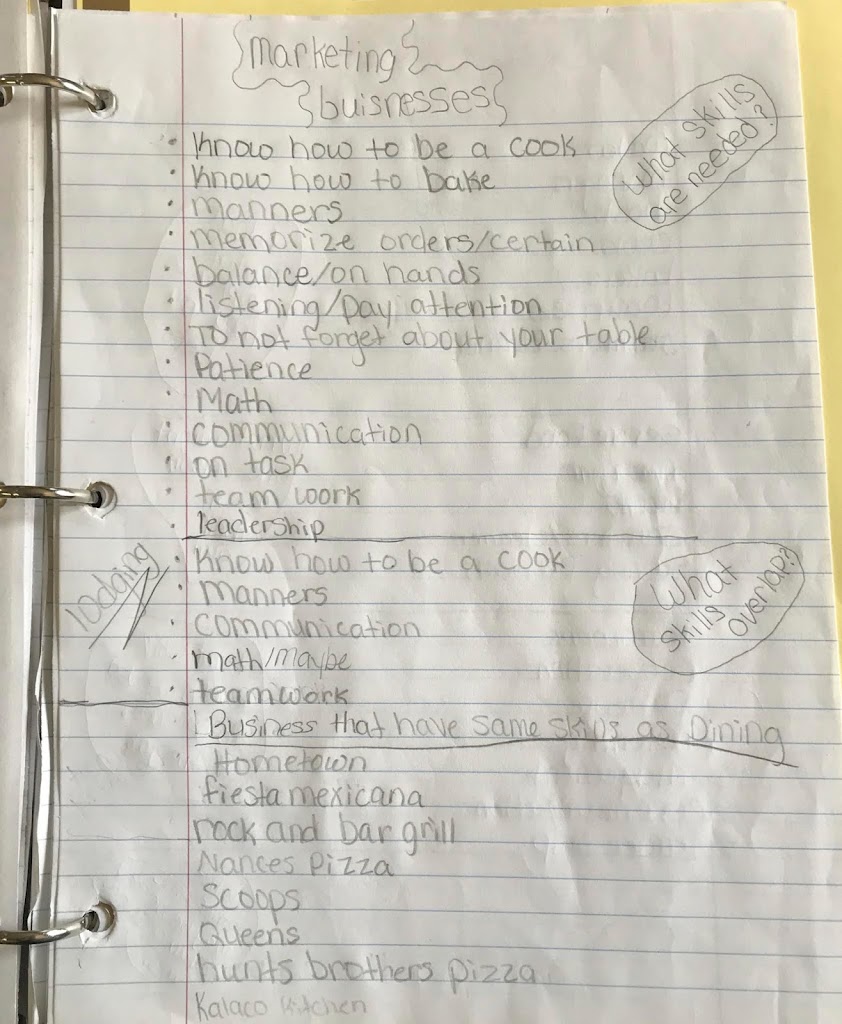 marketing
buisnesses
What skills
are needed?
• Know how to be a cook
• Know how to bake
• manners
• memorize orders/certain
• balance/on hands
• listening/pay attention
• To not forget about your table
• Patience
• Math
• communication
• on task
• team work
• leadership
lodging
What
skills
overlap?
• Know how to be a cook
• manners
• communication
• math/maybe
• teamwork
Business that have same skills as Dining
Hometown
fiesta mexicana
rock and bar grill
Nances Pizza
Scoops
Queens
hunts brothers pizza
Kalaco Kitchen